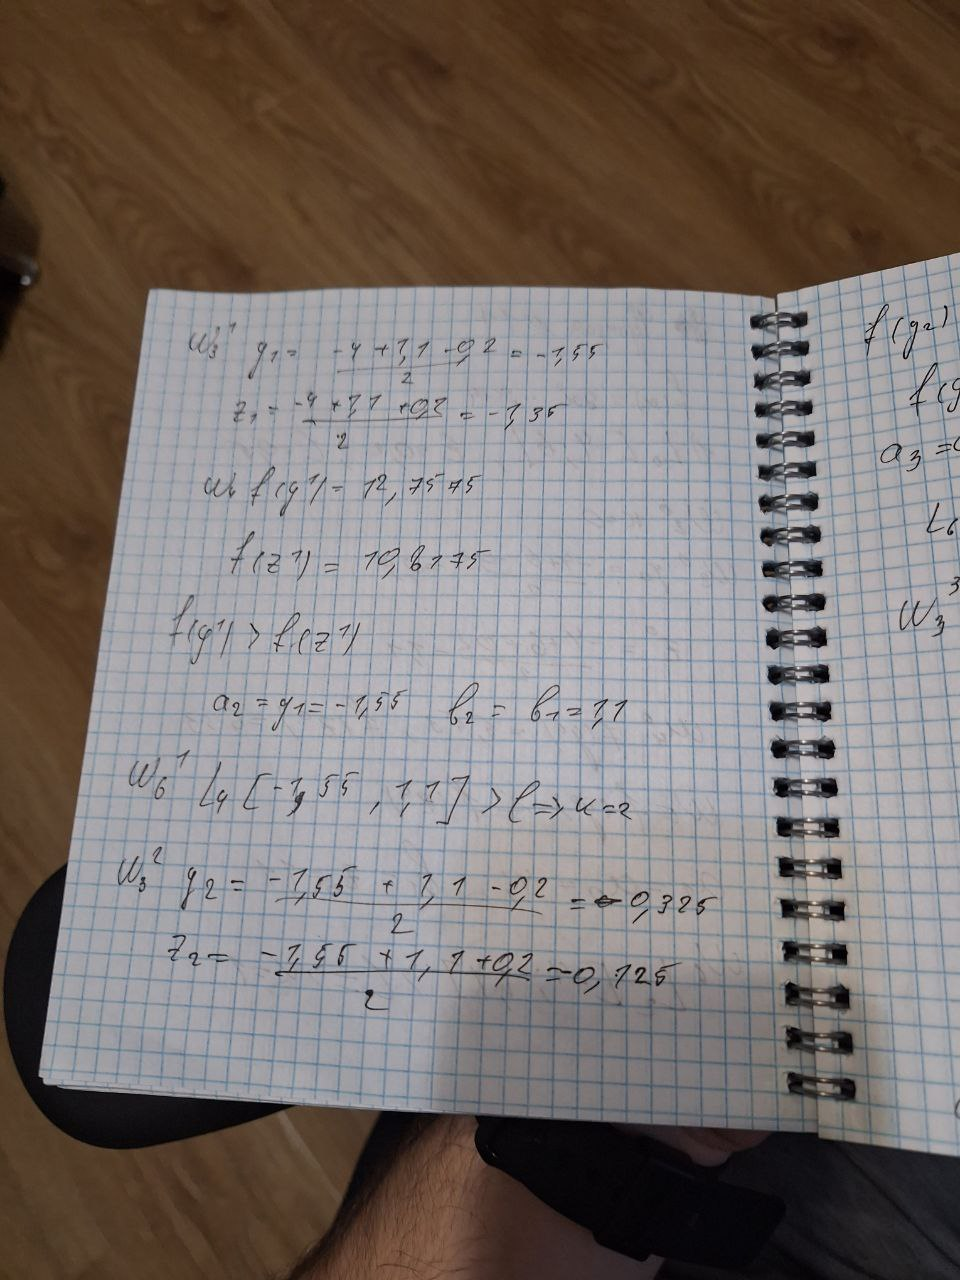 W₃¹ y₁ = (-4 + 1,1 - 0,2)/2 = -1,55
z₁ = (-4 + 1,1 + 0,2)/2 = -1,35
f(y¹) = 12,7575
f(z¹) = 10,8175
f(y¹) > f(z¹)
a₂ = y₁ = -1,55 b₂ = b₁ = 1,1
W₆¹ L₄ [-1,55 , 1,1] > l => k = 2
W₃² y₂ = (-1,55 + 1,1 - 0,2)/2 = -0,325
z₂ = (-1,55 + 1,1 + 0,2)/2 = -0,125
f(y₂)
f(
a₃ =
L₆
W₃³